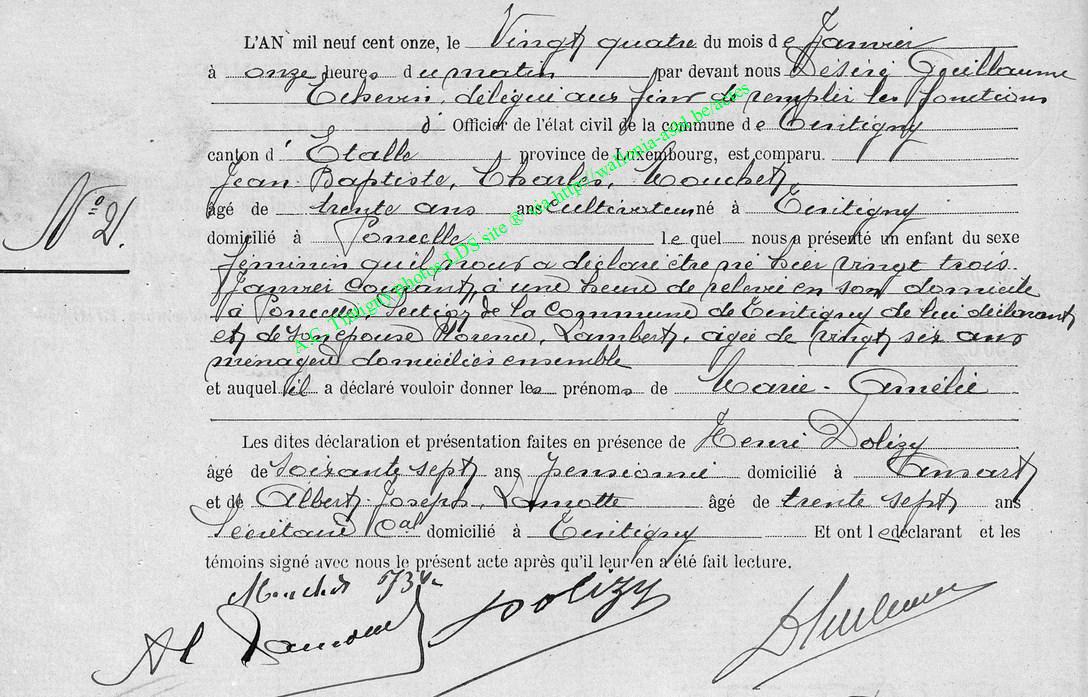 L'AN mil neuf cent onze, le Vingt quatre du mois de Janvier
à onze heures du matin par devant nous Désiré Guillaume
Echevin, délégué aux fins de remplir les fonctions
d' Officier de l'état civil de la commune de Tintigny
canton d'Etalle province de Luxembourg, est comparu.
Jean-Baptiste, Charles, Mouchet
N° 2.
âgé de trente ans ans cultivateur né à Tintigny
domicilié à Poncelle Le quel nous a présenté un enfant du sexe
féminin qu'il nous a déclaré être né hier vingt trois
Janvier courant, à une heure de relevée en son domicile
à Poncelle, Section de la Commune de Tintigny de lui déclarant
et de son épouse Florence, Lambert, agée de vingt six ans
ménagère domiciliés ensemble
et auquel il a déclaré vouloir donner les prénoms de Marie-Amélie
Les dites déclaration et présentation faites en présence de Henri Dolizy
âgé de soixante sept ans pensionné domicilié à Ansart
et de Albert-Joseph, Lamotte âgé de trente sept ans
Secrétaire Cal domicilié à Tintigny Et ont le déclarant et les
témoins signé avec nous le présent acte après qu'il leur en a été fait lecture.
Mouchet
Al Lamotte Dolizy D Guillaume
A.C. Tintigny photos LDS site ® via http://wallonia-asbl.be/actes